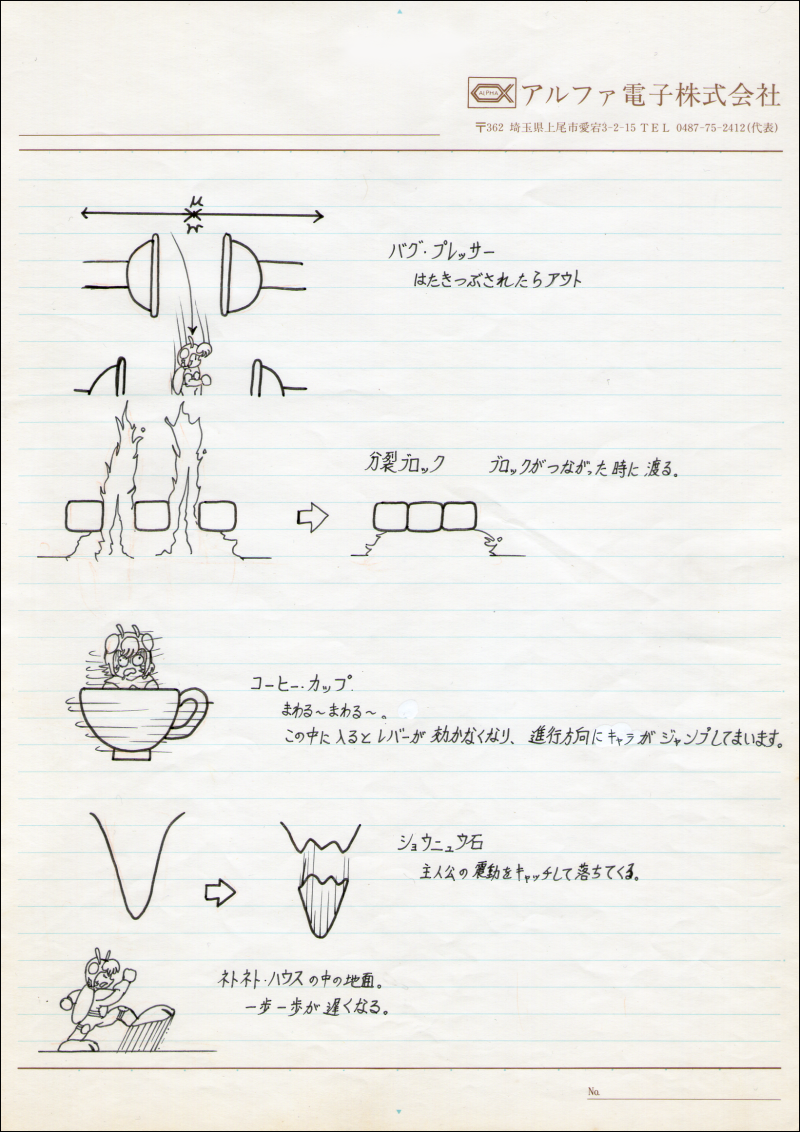 ALPHA アルファ電子株式会社
〒362 埼玉県上尾市愛宕3-2-15 TEL 0487-75-2412(代表)
バグ・プレッサー
はたきつぶされたらアウト
分裂ブロック ブロックがつながった時に渡る。
コーヒー・カップ
まわる〜まわる〜。
この中に入るとレバーが効かなくなり、進行方向にキャラがジャンプしてまいます。
ショウニュウ石
主人公の震動をキャッチして落ちてくる。
ネトネト・ハウスの中の地面。
一歩一歩が遅くなる。
No.